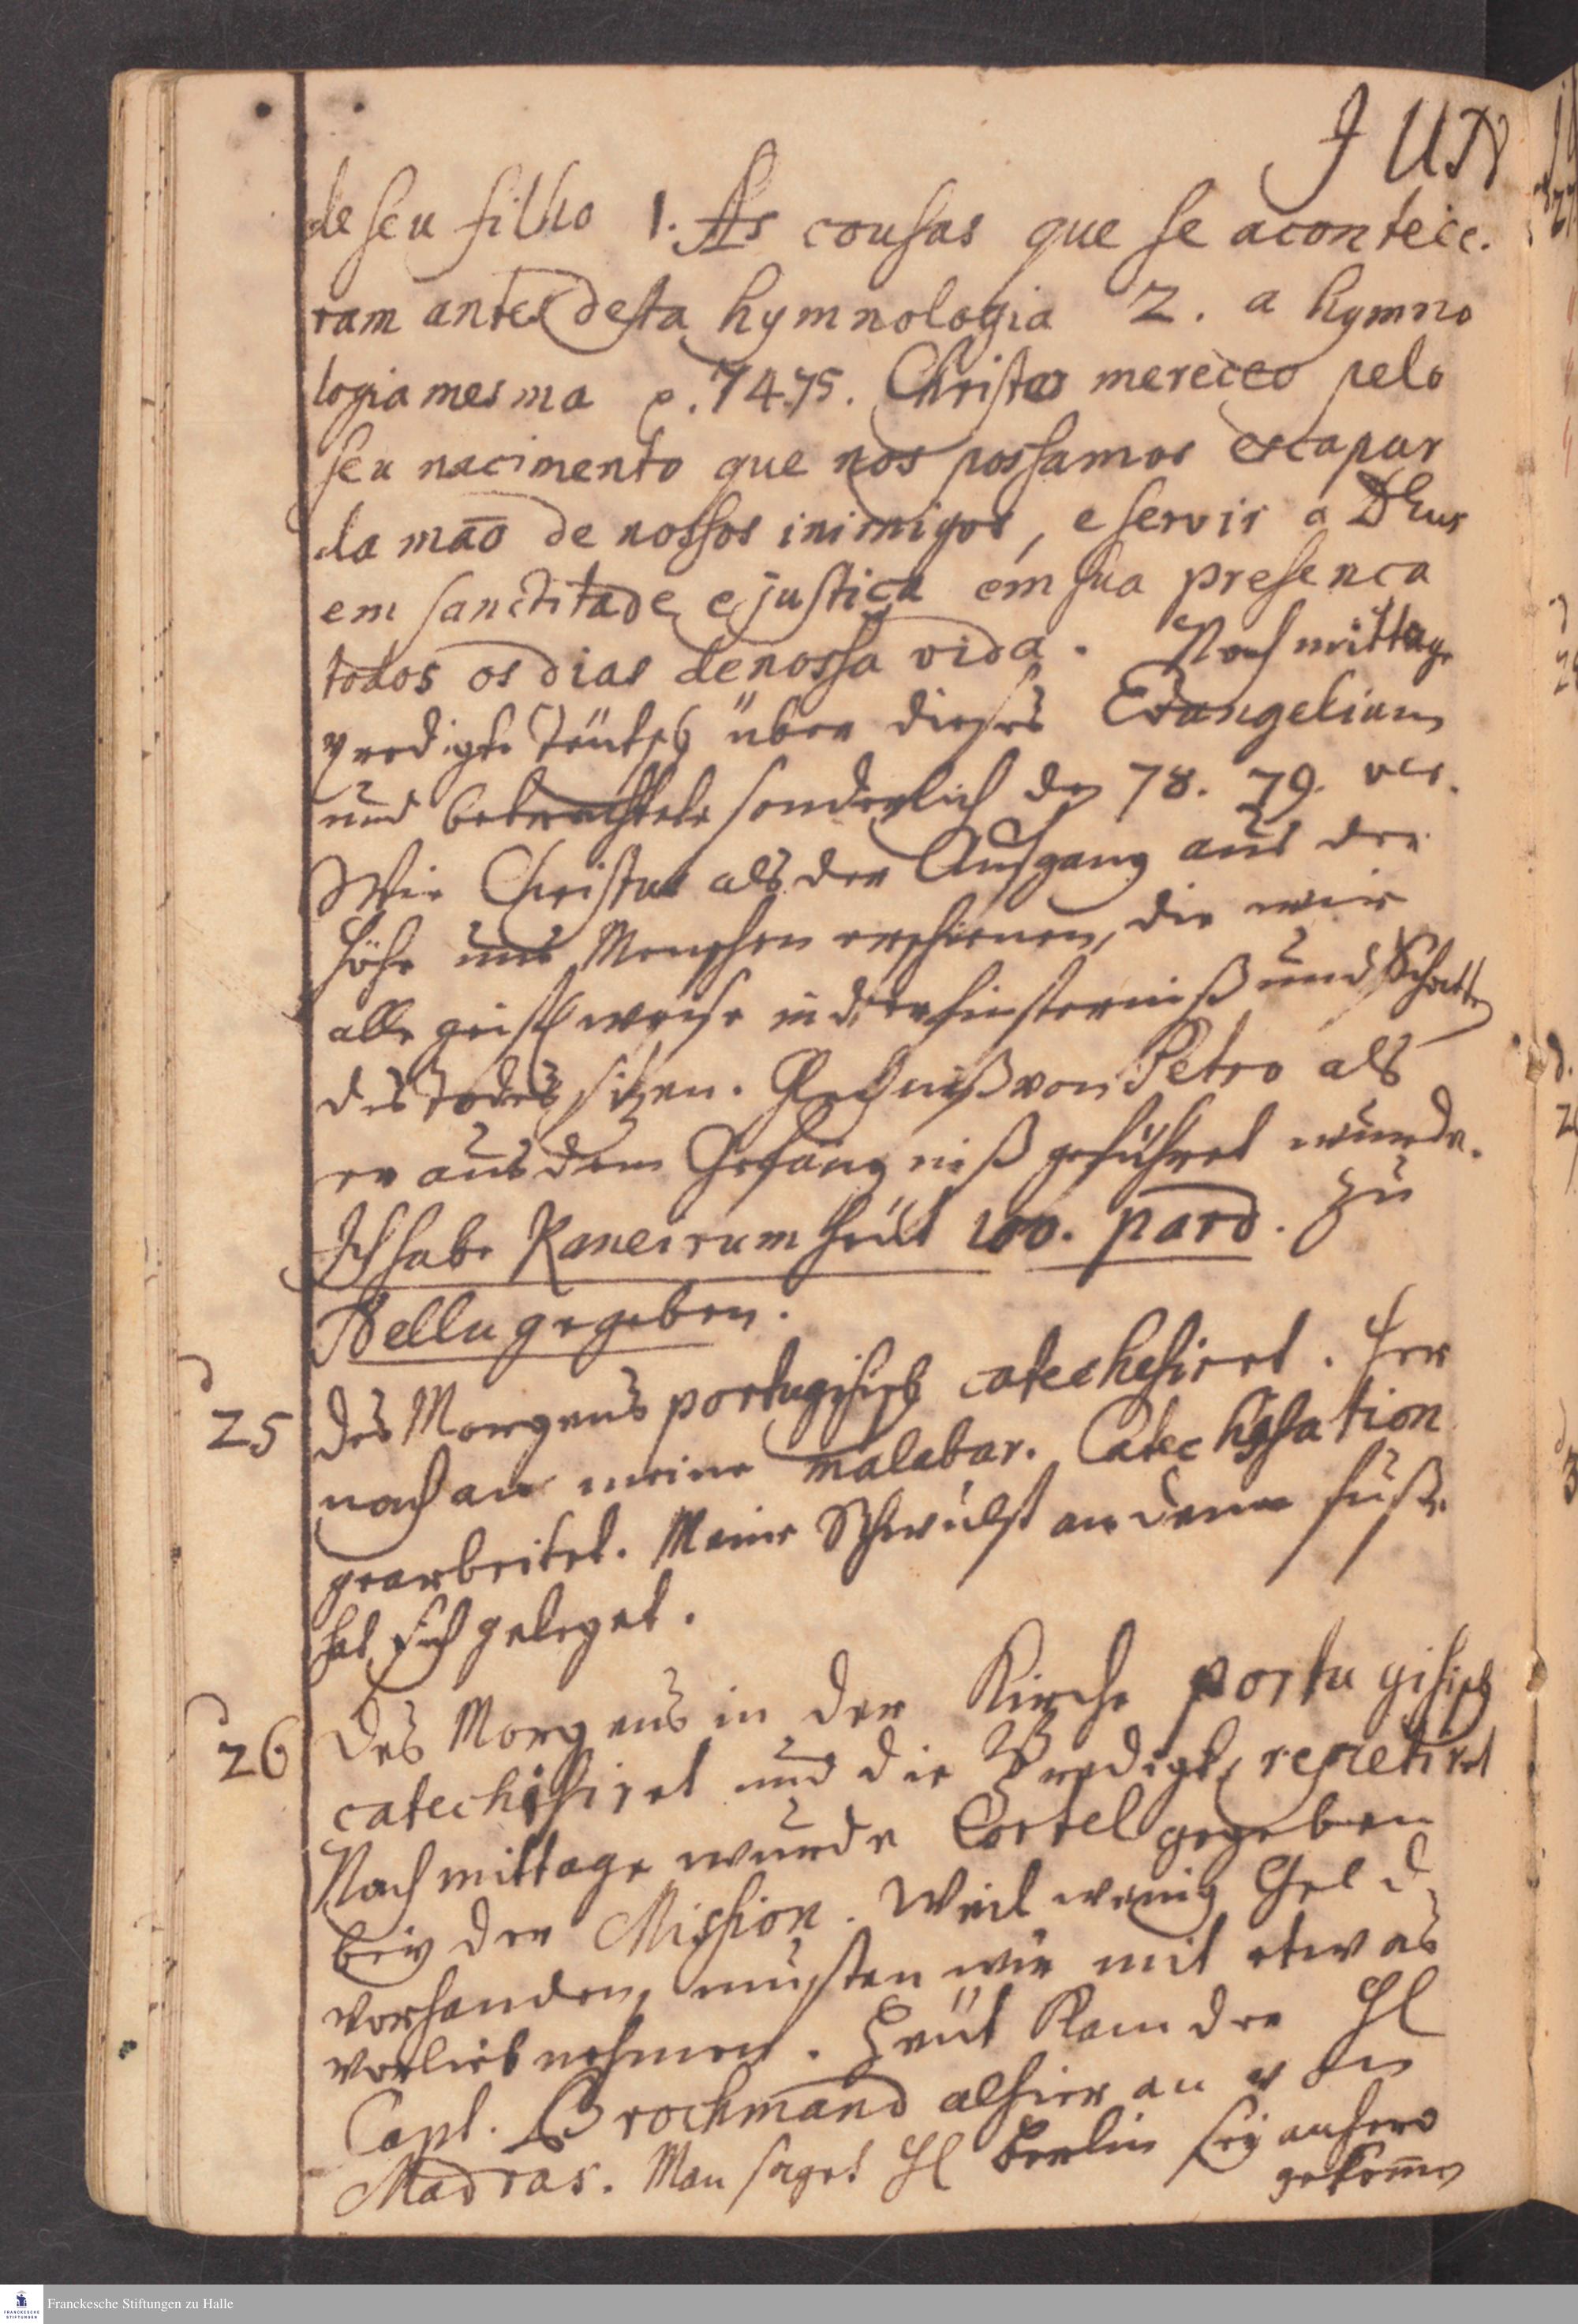 JUN
de seu filho 1. As cousas que se acontece.
ram antes desta hymnologia 2. a hymno
logia mesma v. 74.75. Christo mereceo pelo
seu nacimento que nos possamos escapar
da mão de nossos inimigos, e servir a Deus
em sanctitade e justiça em sua presenca
todos os dias de nossa vida. Nachmittage
predigte Teütsch über dieses Evangelium
und betrachtete sonderlich den 78. 79. ver.
Wie Christus als der Aufgang aus der
Höhe uns Menschen erschienen, die wir
alle geistl weise in der finsterniß und Schatten
des todes sitzen. Gleichniß von Petro als
er aus dem Gefängniß geführet wurde.
Ich habe Raneirum heüt 100. pard. zu
Nellu gegeben.
25 Des Morgens portugisisch catechesiret. Her
nach an meine malabar. Catechisation
gearbeitet. Meine Schwulst an dem fuße
hat sich geleget.
26 Des Morgens in der Kirche portugisisch
catechisiret und die Predigt repetiret
Nachmittage wurde Costel gegeben
bey der Mission. Weil wenig Geld
vorhanden, musten wir mit etwas
vorlieb nehmen. Heüt kam der HE
Capt. Brochmand alhier an von
Madras. Man saget HE Berlin sey anhero
gekomen
Franckesche Stiftungen zu Halle